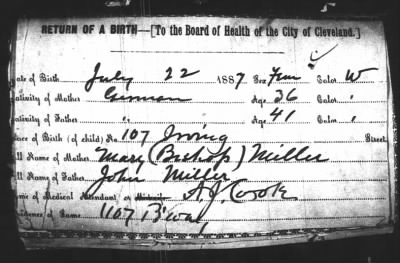 RETURN OF A BIRTH—[To the Board of Health of the City of Cleveland.]
ate of Birth July 22 1887 Sex Fem Color W
ativity of Mother German Age 36 Color "
ativity of Father " Age 41 Color "
lace of Birth (of child) No. 107 Irving Street
ll Name of Mother Mary (Bishop) Miller
ll Name of Father John Miller
me of Medical Attendant or Midwife A. J. Cook
sidence of Same 1107 B'way